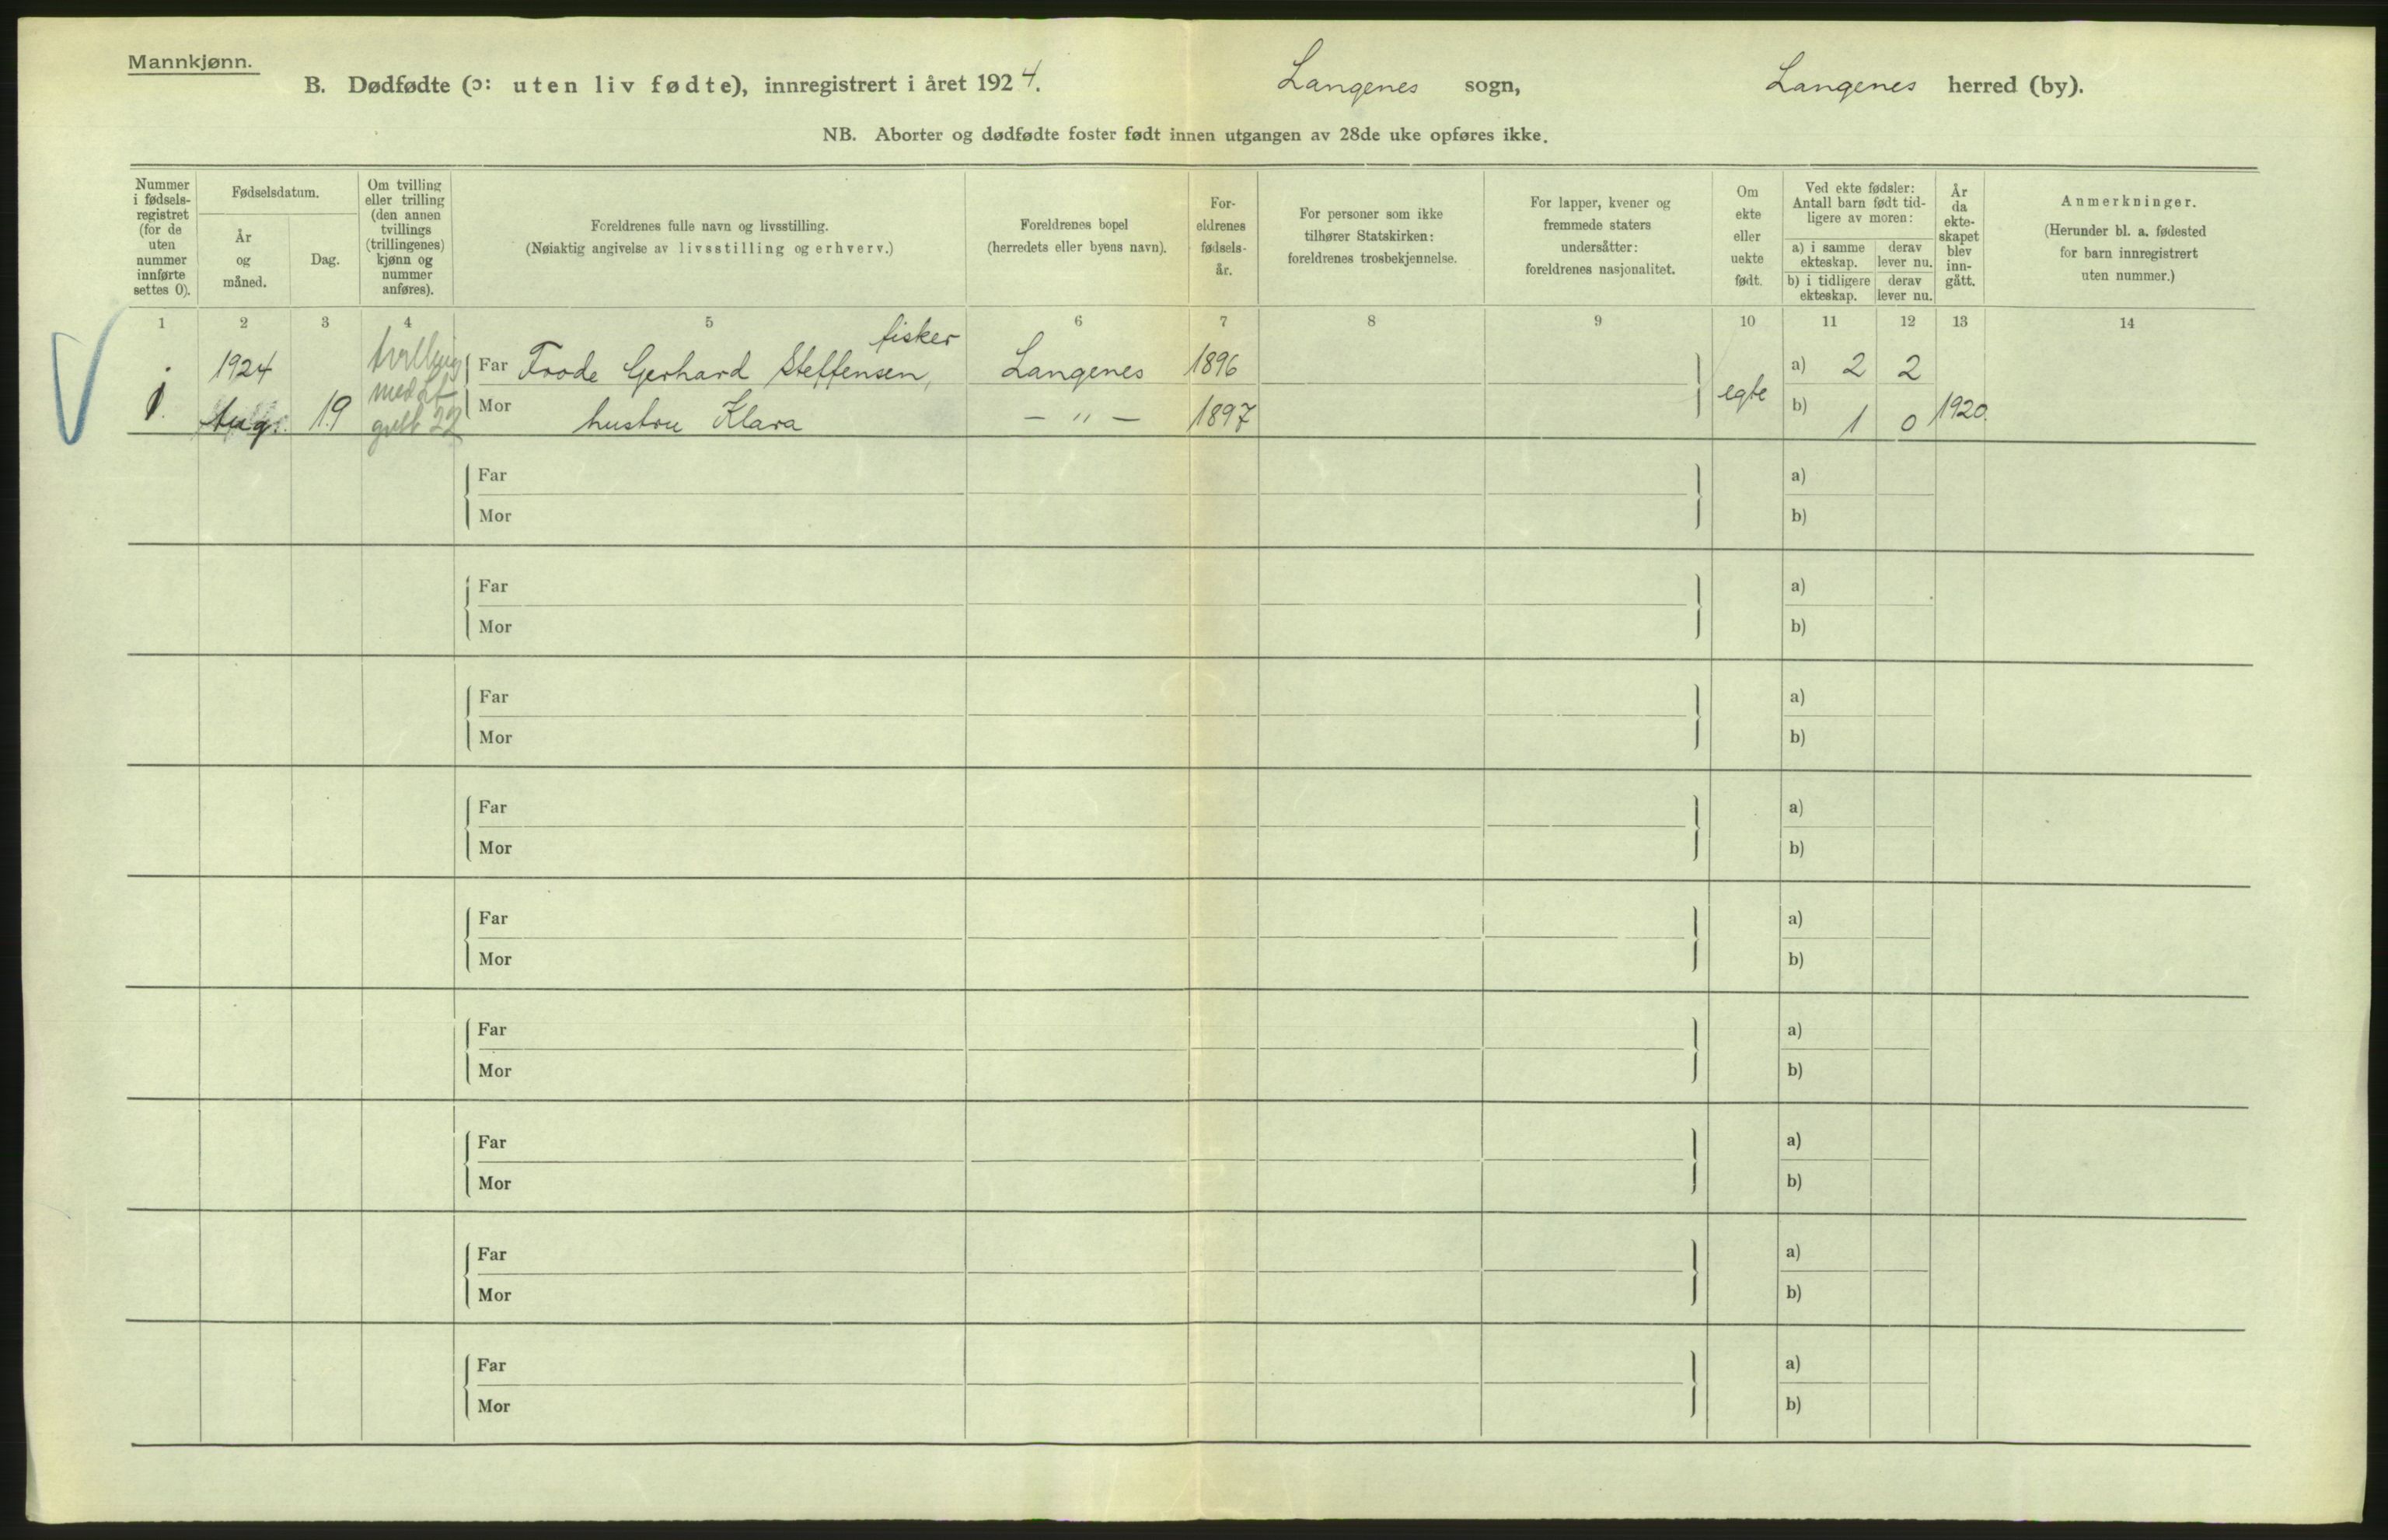 Mannkjønn.
B. Dødfødte (ɔ: uten liv fødte), innregistrert i året 1924. Langenes sogn, Langenes herred (by).
NB. Aborter og dødfødte foster født innen utgangen av 28de uke opføres ikke.
Nummer i fødsels-registret (for de uten nummer innførte settes 0).
Fødselsdatum.
År og måned.
Dag.
Om tvilling eller trilling (den annen tvillings (trillingenes) kjønn og nummer anføres).
Foreldrenes fulle navn og livsstilling.
(Nøiaktig angivelse av livsstilling og erhverv.)
Foreldrenes bopel
(herredets eller byens navn).
For-eldrenes fødsels-år.
For personer som ikke tilhører Statskirken: foreldrenes trosbekjennelse.
For lapper, kvener og fremmede staters undersåtter: foreldrenes nasjonalitet.
Om ekte eller uekte født.
Ved ekte fødsler: Antall barn født tid-ligere av moren:
a) i samme ekteskap.
derav lever nu.
b) i tidligere ekteskap.
derav lever nu.
År da ekte-skapet blev inn-gått.
Anmerkninger.
(Herunder bl. a. fødested for barn innregistrert uten nummer.)
1 2 3 4 5 6 7 8 9 10 11 12 13 14
fisker
1924 Far Frode Gerhard Steffensen, Langenes 1896 a) 2 2
1. Aug. 19 Mor hustru Klara – " – 1897 egte b) 1 0 1920.
Far a)
Mor b)
Far a)
Mor b)
Far a)
Mor b)
Far a)
Mor b)
Far a)
Mor b)
Far a)
Mor b)
Far a)
Mor b)
Far a)
Mor b)
Far a)
Mor b)